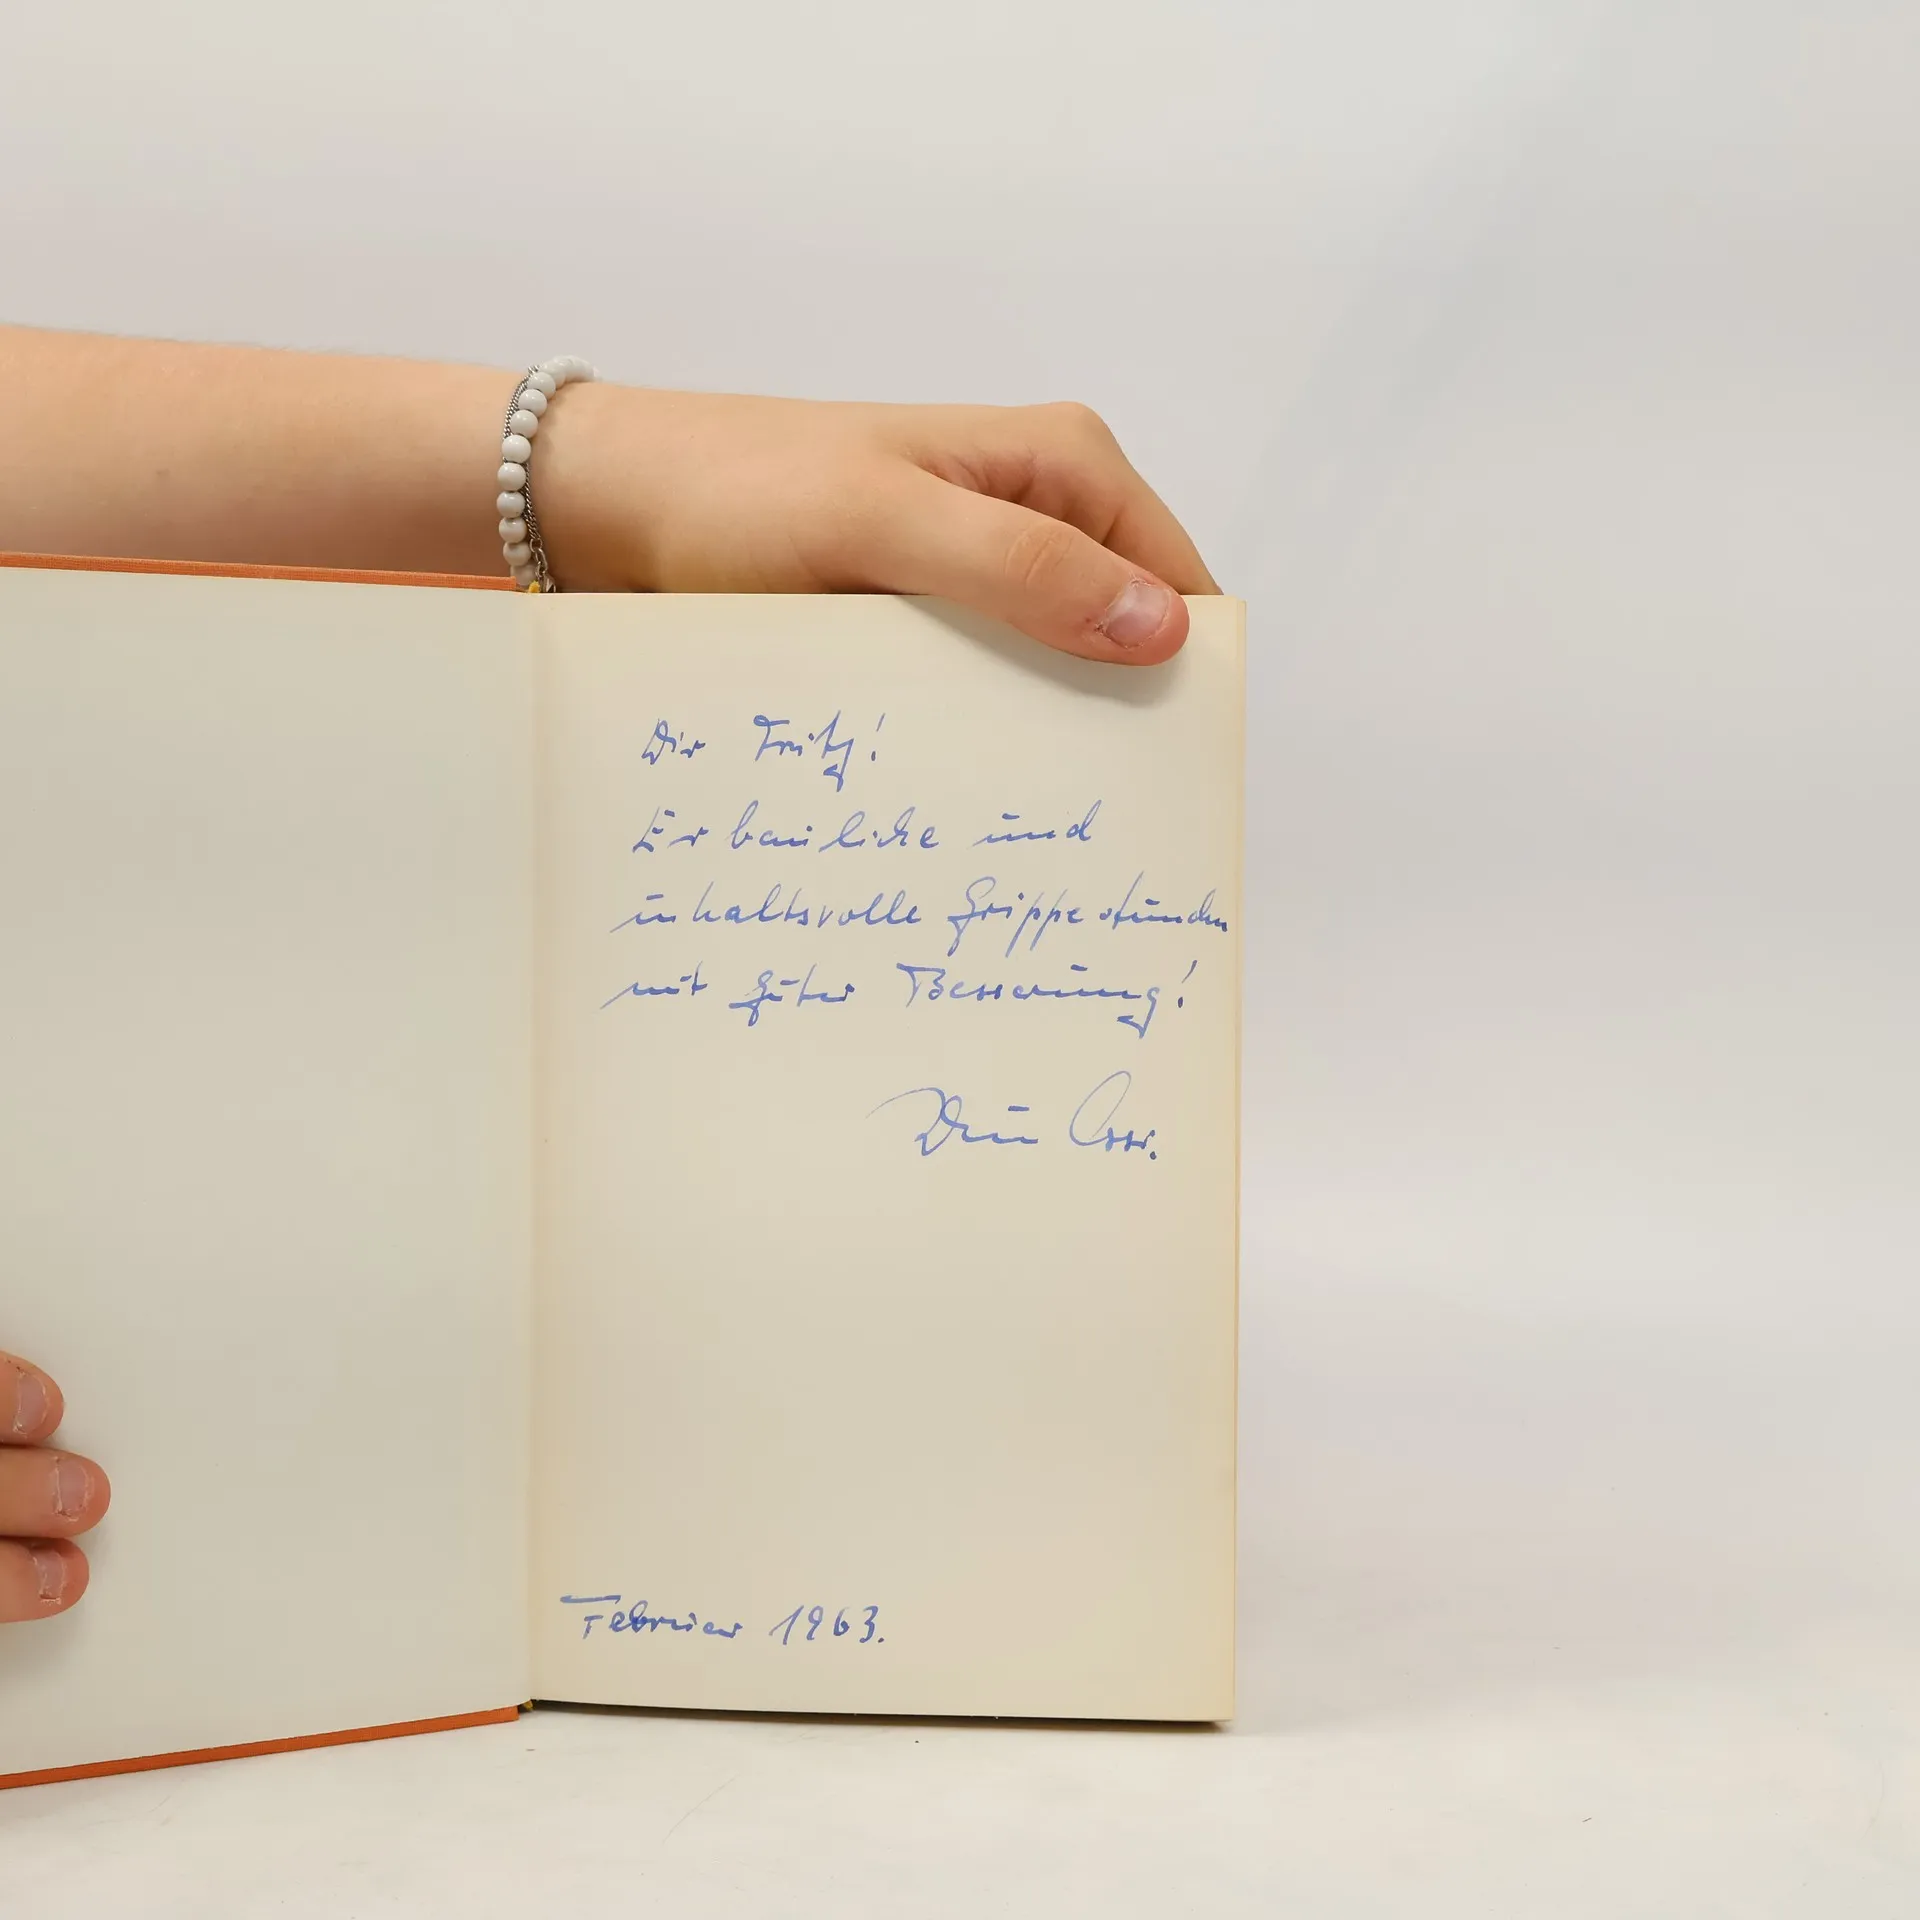 Dir Fritz!
Erbauliche und
inhaltsvolle Grippestunden
mit guter Besserung!
Dein
Februar 1963.